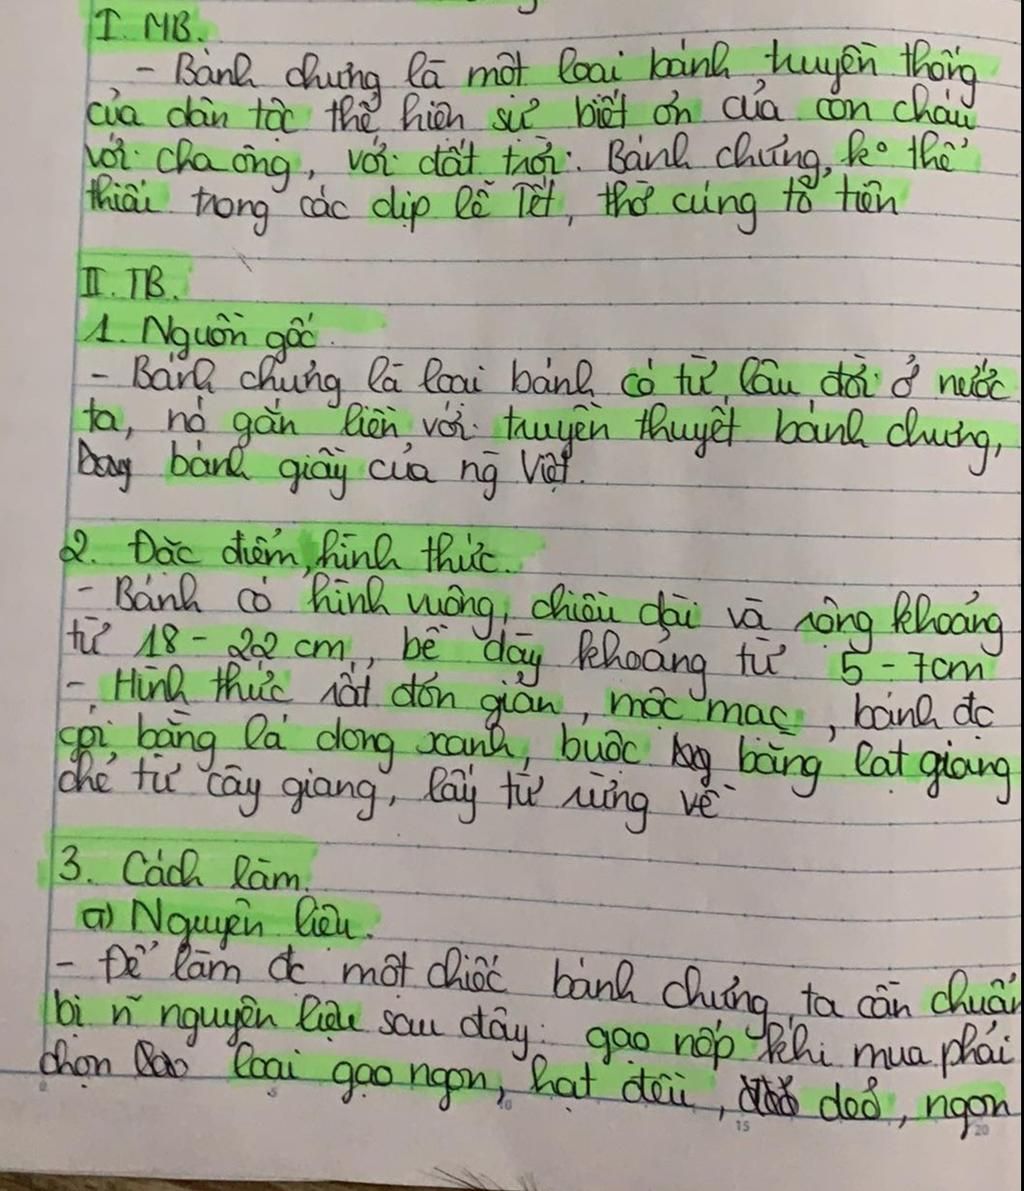 I. MB.
- Bánh chưng là một loại bánh truyền thống
của dân tộc thể hiện sự biết ơn của con cháu
với cha ông, với đất trời. Bánh chưng, ko thể
thiếu trong các dịp lễ Tết, thờ cúng tổ tiên
II. TB.
1. Nguồn gốc.
- Bánh chưng là loại bánh có từ lâu đời ở nước
ta, nó gắn liền với truyền thuyết bánh chưng,
bánh giầy của ng Việt.
2. Đặc điểm, hình thức.
- Bánh có hình vuông, chiều dài và rộng khoảng
từ 18 - 22 cm, bề dày khoảng từ 5 - 7cm
- Hình thức rất đơn giản, mộc mạc, bánh đc
gói bằng lá dong xanh, buộc bằng lạt giang
chẻ từ cây giang, lấy từ rừng về
3. Cách làm.
a) Nguyên liệu.
- Để làm đc một chiếc bánh chưng ta cần chuẩn
bị n~ nguyên liệu sau đây: gạo nếp khi mua phải
chọn loại gạo ngon, hạt đều, dẻo, ngon
15
20